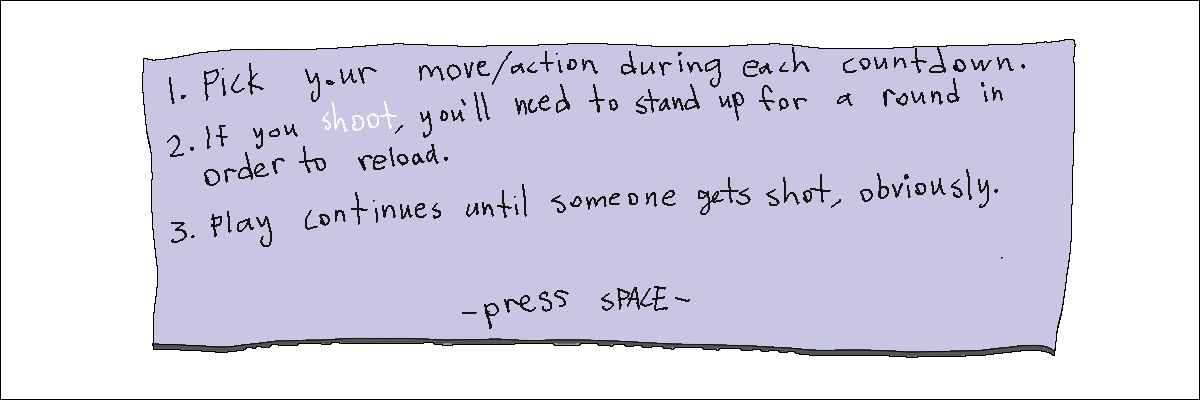 1. Pick your move/action during each countdown.
2. If you shoot, you'll need to stand up for a round in
order to reload.
3. Play continues until someone gets shot, obviously.
-press SPACE-